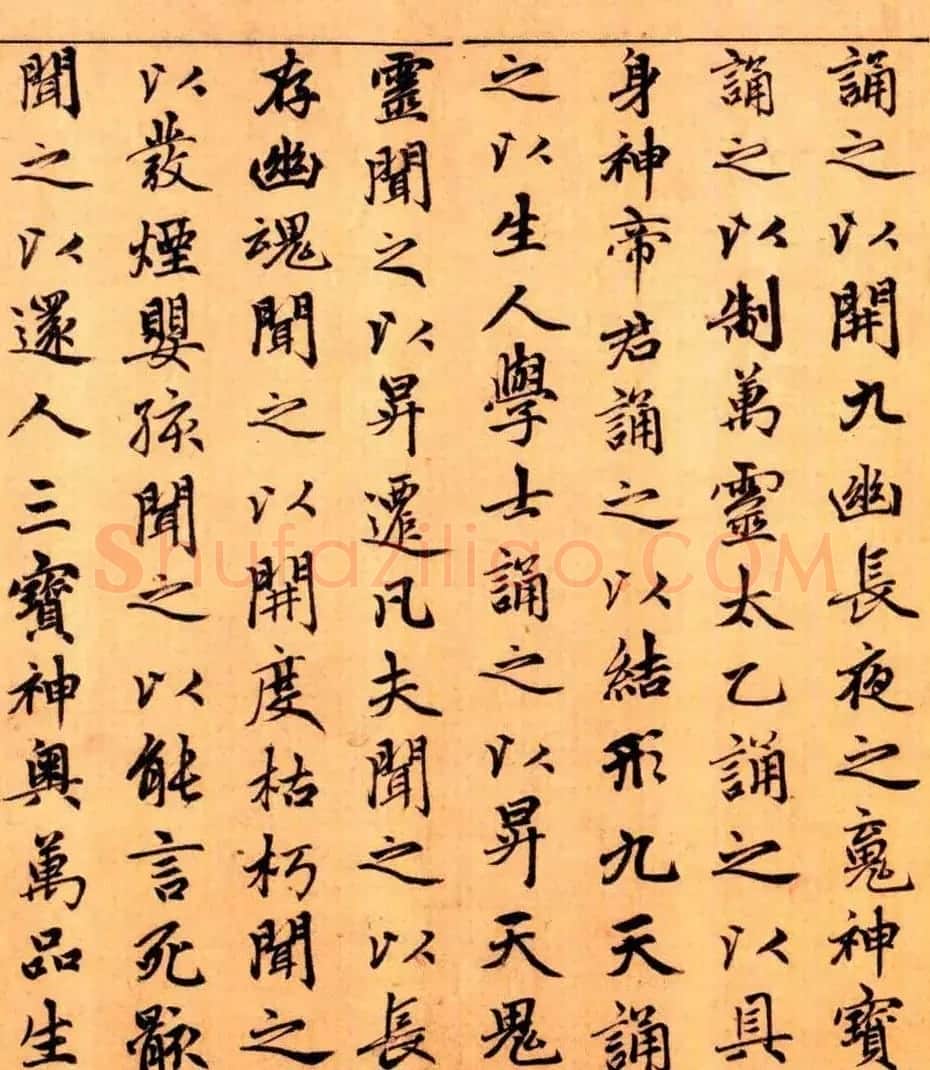 誦之以開九幽長夜之魂神寶
誦之以制萬靈太乙誦之以具
身神帝君誦之以結形九天誦
之以生人學士誦之以昇天鬼
靈聞之以昇遷凡夫聞之以長
存幽魂聞之以開度枯朽聞之
以發煙嬰孩聞之以能言死骸
聞之以還人三寶神奧萬品生
Shufaziliao.COM